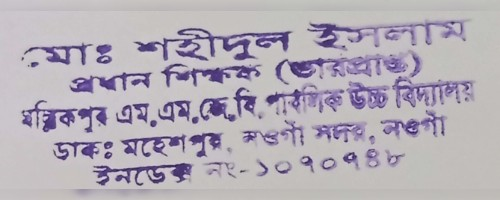 মোঃ শহীদুল ইসলাম
প্রধান শিক্ষক (ভারপ্রাপ্ত)
মল্লিকপুর এম.এম.জে.বি.পাবলিক উচ্চ বিদ্যালয়
ডাকঃ মহেশপুর, নওগাঁ সদর, নওগাঁ
ইনডেক্স নং-১০৭০৭৪৮